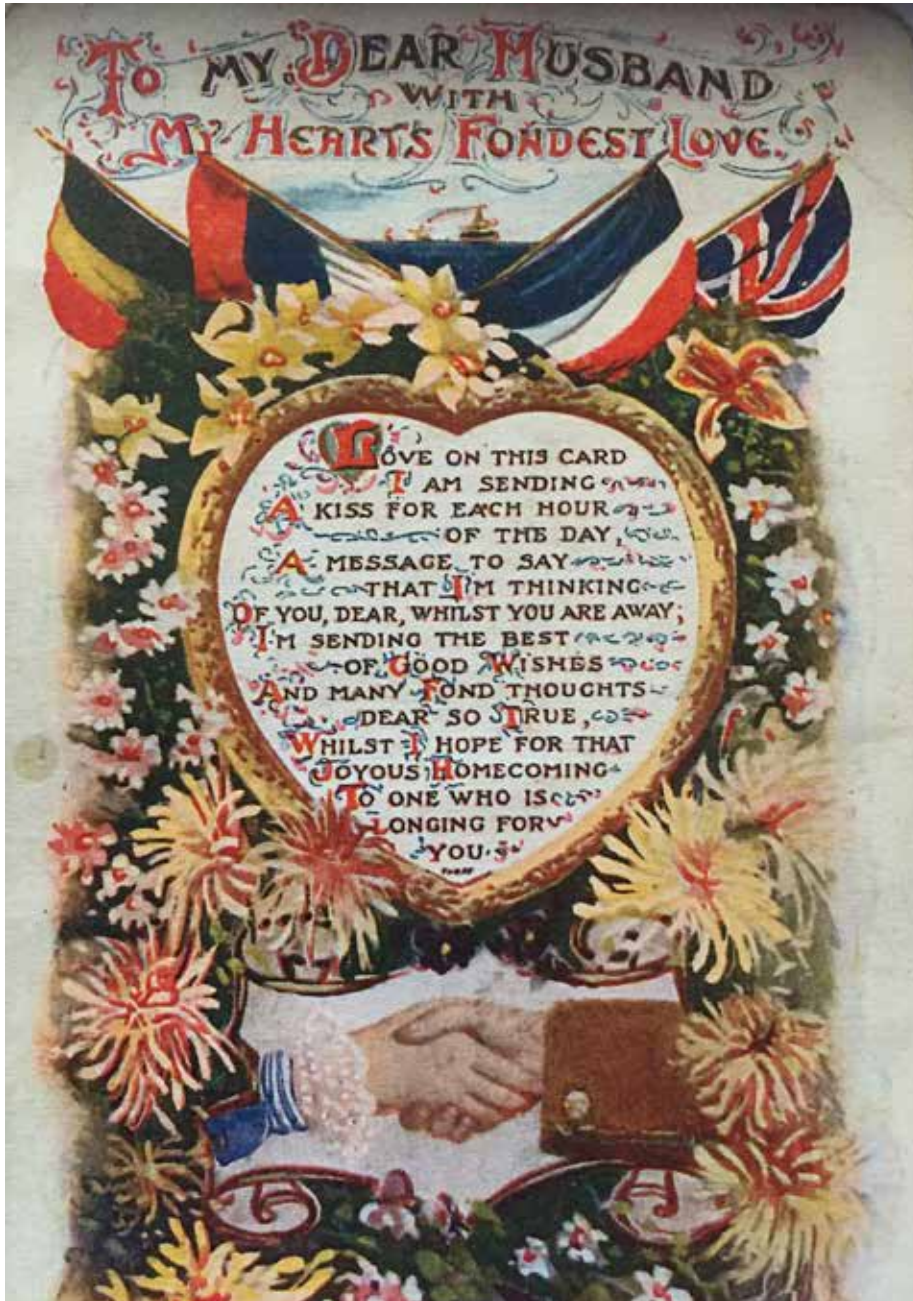 TO MY DEAR HUSBAND
WITH
MY HEART'S FONDEST LOVE.
LOVE ON THIS CARD
I AM SENDING
A KISS FOR EACH HOUR
OF THE DAY,
A MESSAGE TO SAY
THAT I'M THINKING
OF YOU, DEAR, WHILST YOU ARE AWAY;
I'M SENDING THE BEST
OF GOOD WISHES
AND MANY FOND THOUGHTS
DEAR SO TRUE,
WHILST I HOPE FOR THAT
JOYOUS HOMECOMING
TO ONE WHO IS
LONGING FOR
YOU.